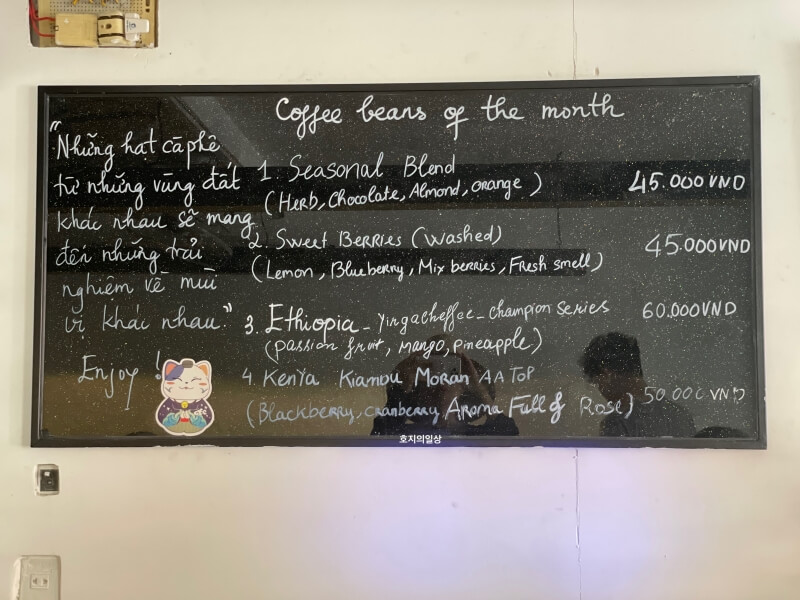 Coffee beans of the month
"Những hạt cà phê
từ những vùng đất
khác nhau sẽ mang
đến những trải
nghiệm về mùi
vị khác nhau."
Enjoy!
1 Seasonal Blend
(Herb, Chocolate, Almond, orange)
45.000 VND
2. Sweet Berries (washed)
(Lemon, Blueberry, Mix berries, Fresh smell)
45.000VND
3. Ethiopia - Yirgacheffee - champion series
(passion fruit, mango, pineapple)
60.000VND
4. Kenya Kiambu Moran AA TOP
(Blackberry, cranberry, Aroma Full of Rose)
50.000 VND
호지의일상